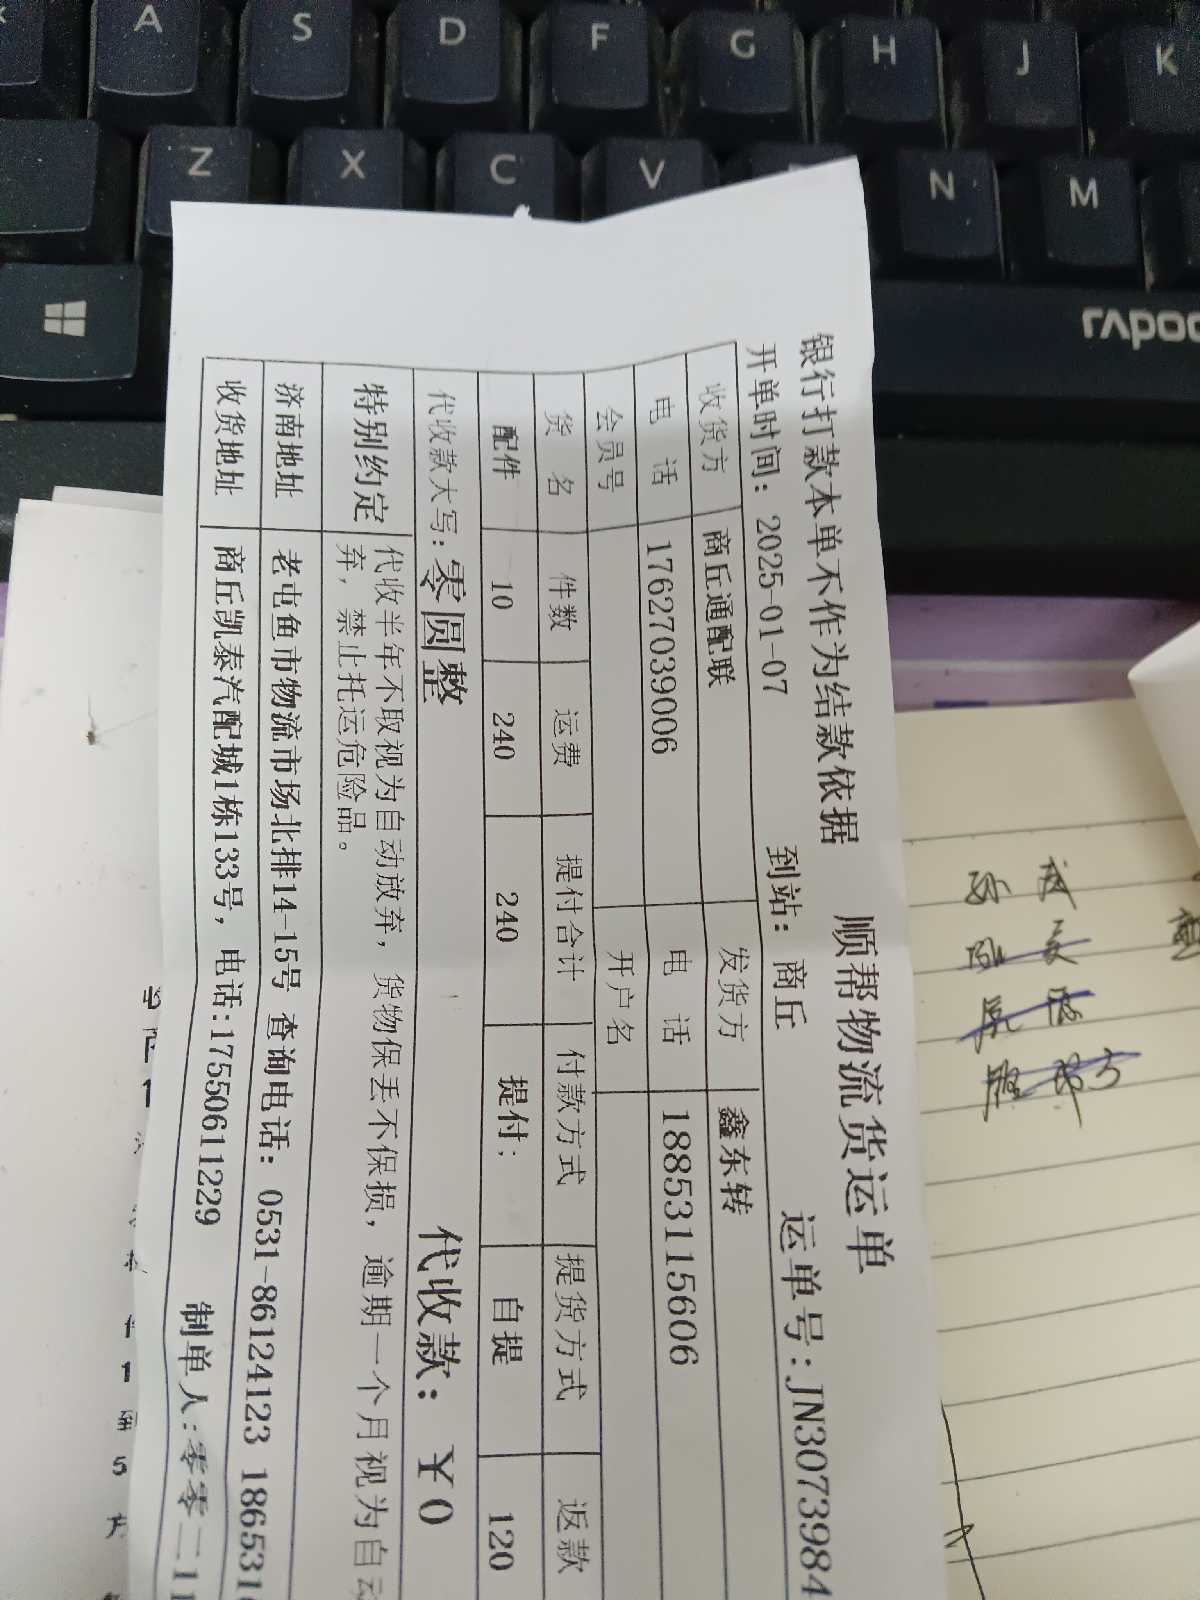 A S D F G H J K
Z X C V N M
rapoo
银行打款本单不作为结款依据 顺帮物流货运单
开单时间: 2025-01-07 到站: 商丘 运单号:JN3073984
收货方 商丘通配联 发货方 鑫东转
电 话 17627039006 电 话 18853115606
会员号 开户名
货 名 件数 运费 提付合计 付款方式 提货方式 返款
配件 10 240 240 提付: 自提 120
代收款大写: 零圆整 代收款: ￥0
特别约定 代收半年不取视为自动放弃, 货物保丢不保损, 逾期一个月视为自动
弃, 禁止托运危险品。
济南地址 老屯鱼市物流市场北排14-15号 查询电话: 0531-86124123 1865316
收货地址 商丘凯泰汽配城1栋133号, 电话:17550611229 制单人:零零二11